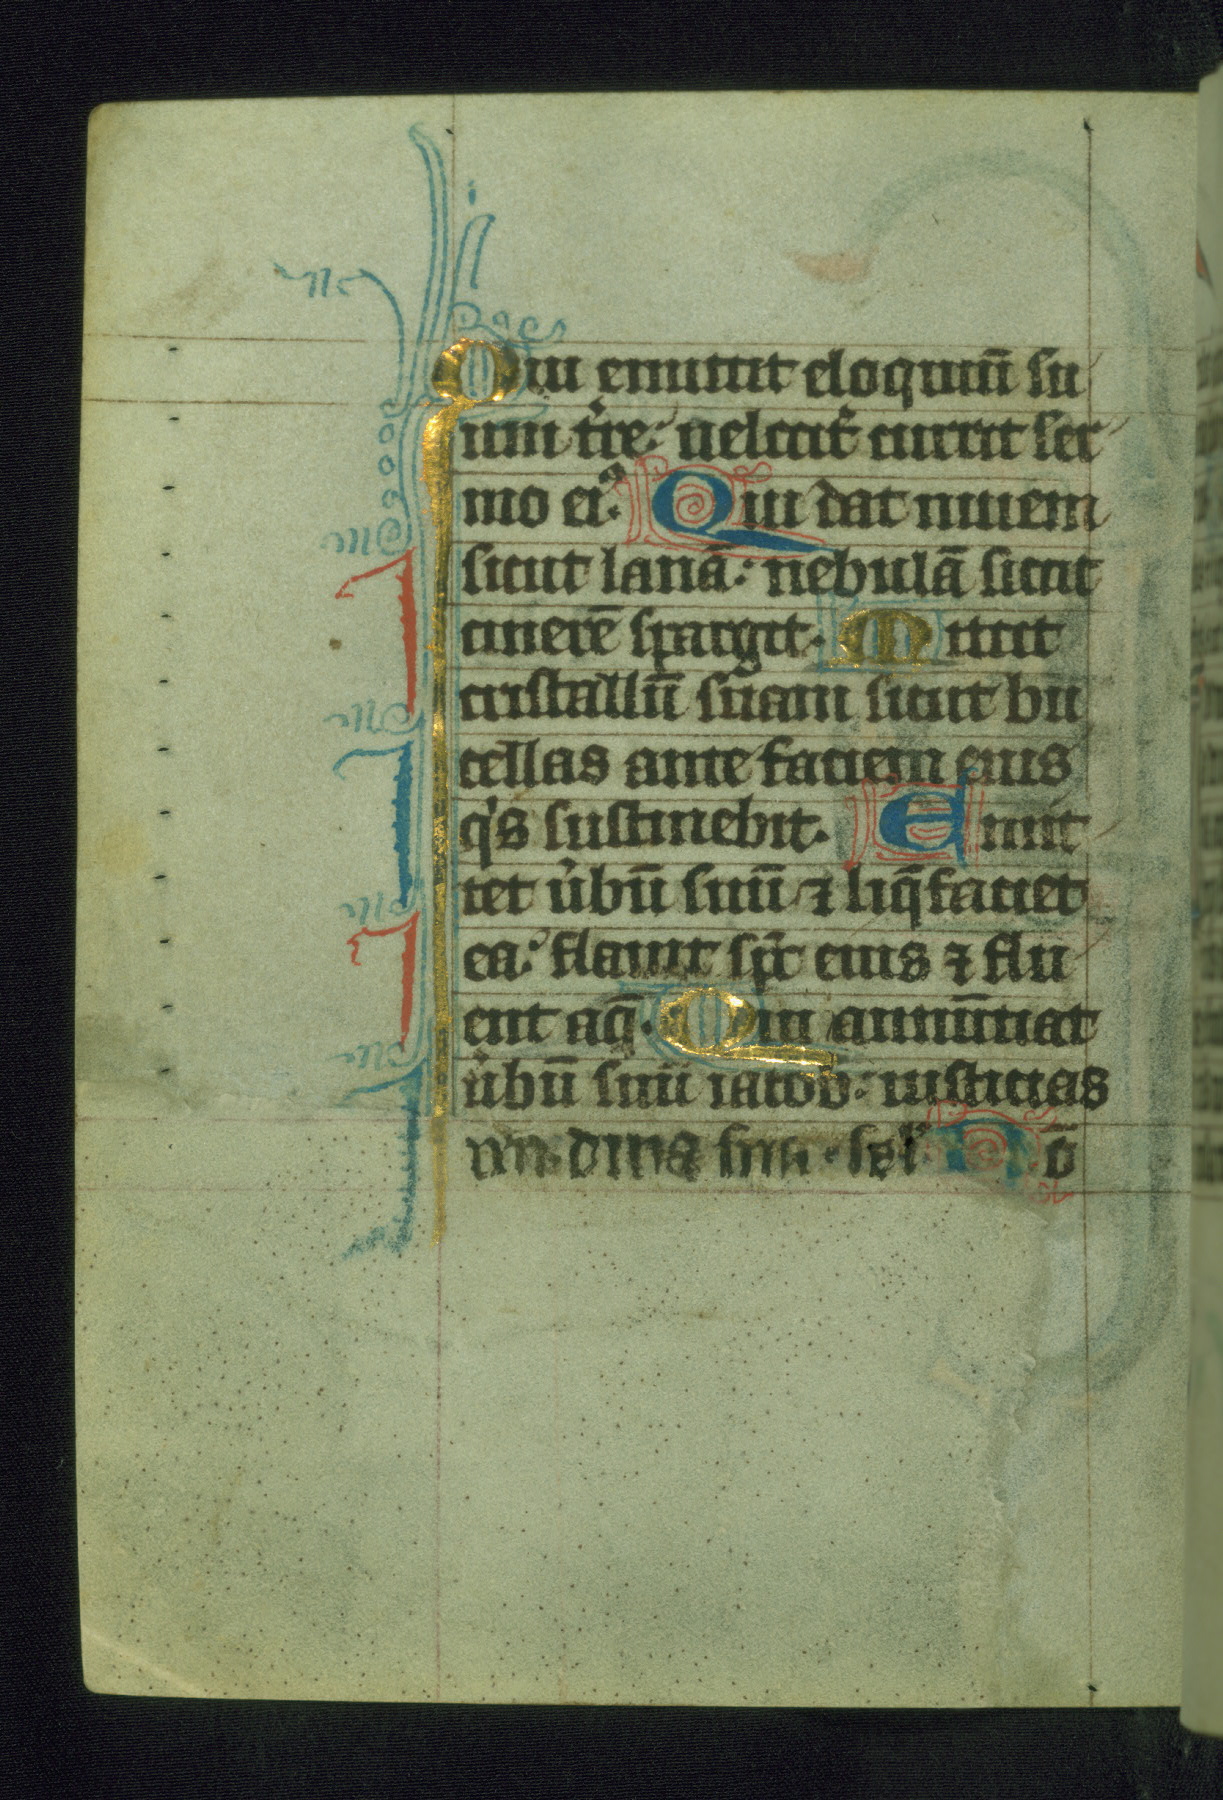 Qui emittit eloquiū su
um t're: uelocit' currit ser
mo ei9. Qui dat niuem
sicut lanā: nebulā sicut
cinerē spargit. Mittit
cristallū suam sicut bu
cellas ante faciem eius
q's sustinebit. Emit
tet u'bū suū ⁊ liq̄faciet
ea: flauit sp̄c eius ⁊ flu
ent aq̄. Qui annūtiat
u'bū suū iacob: iusticias
sua Nō